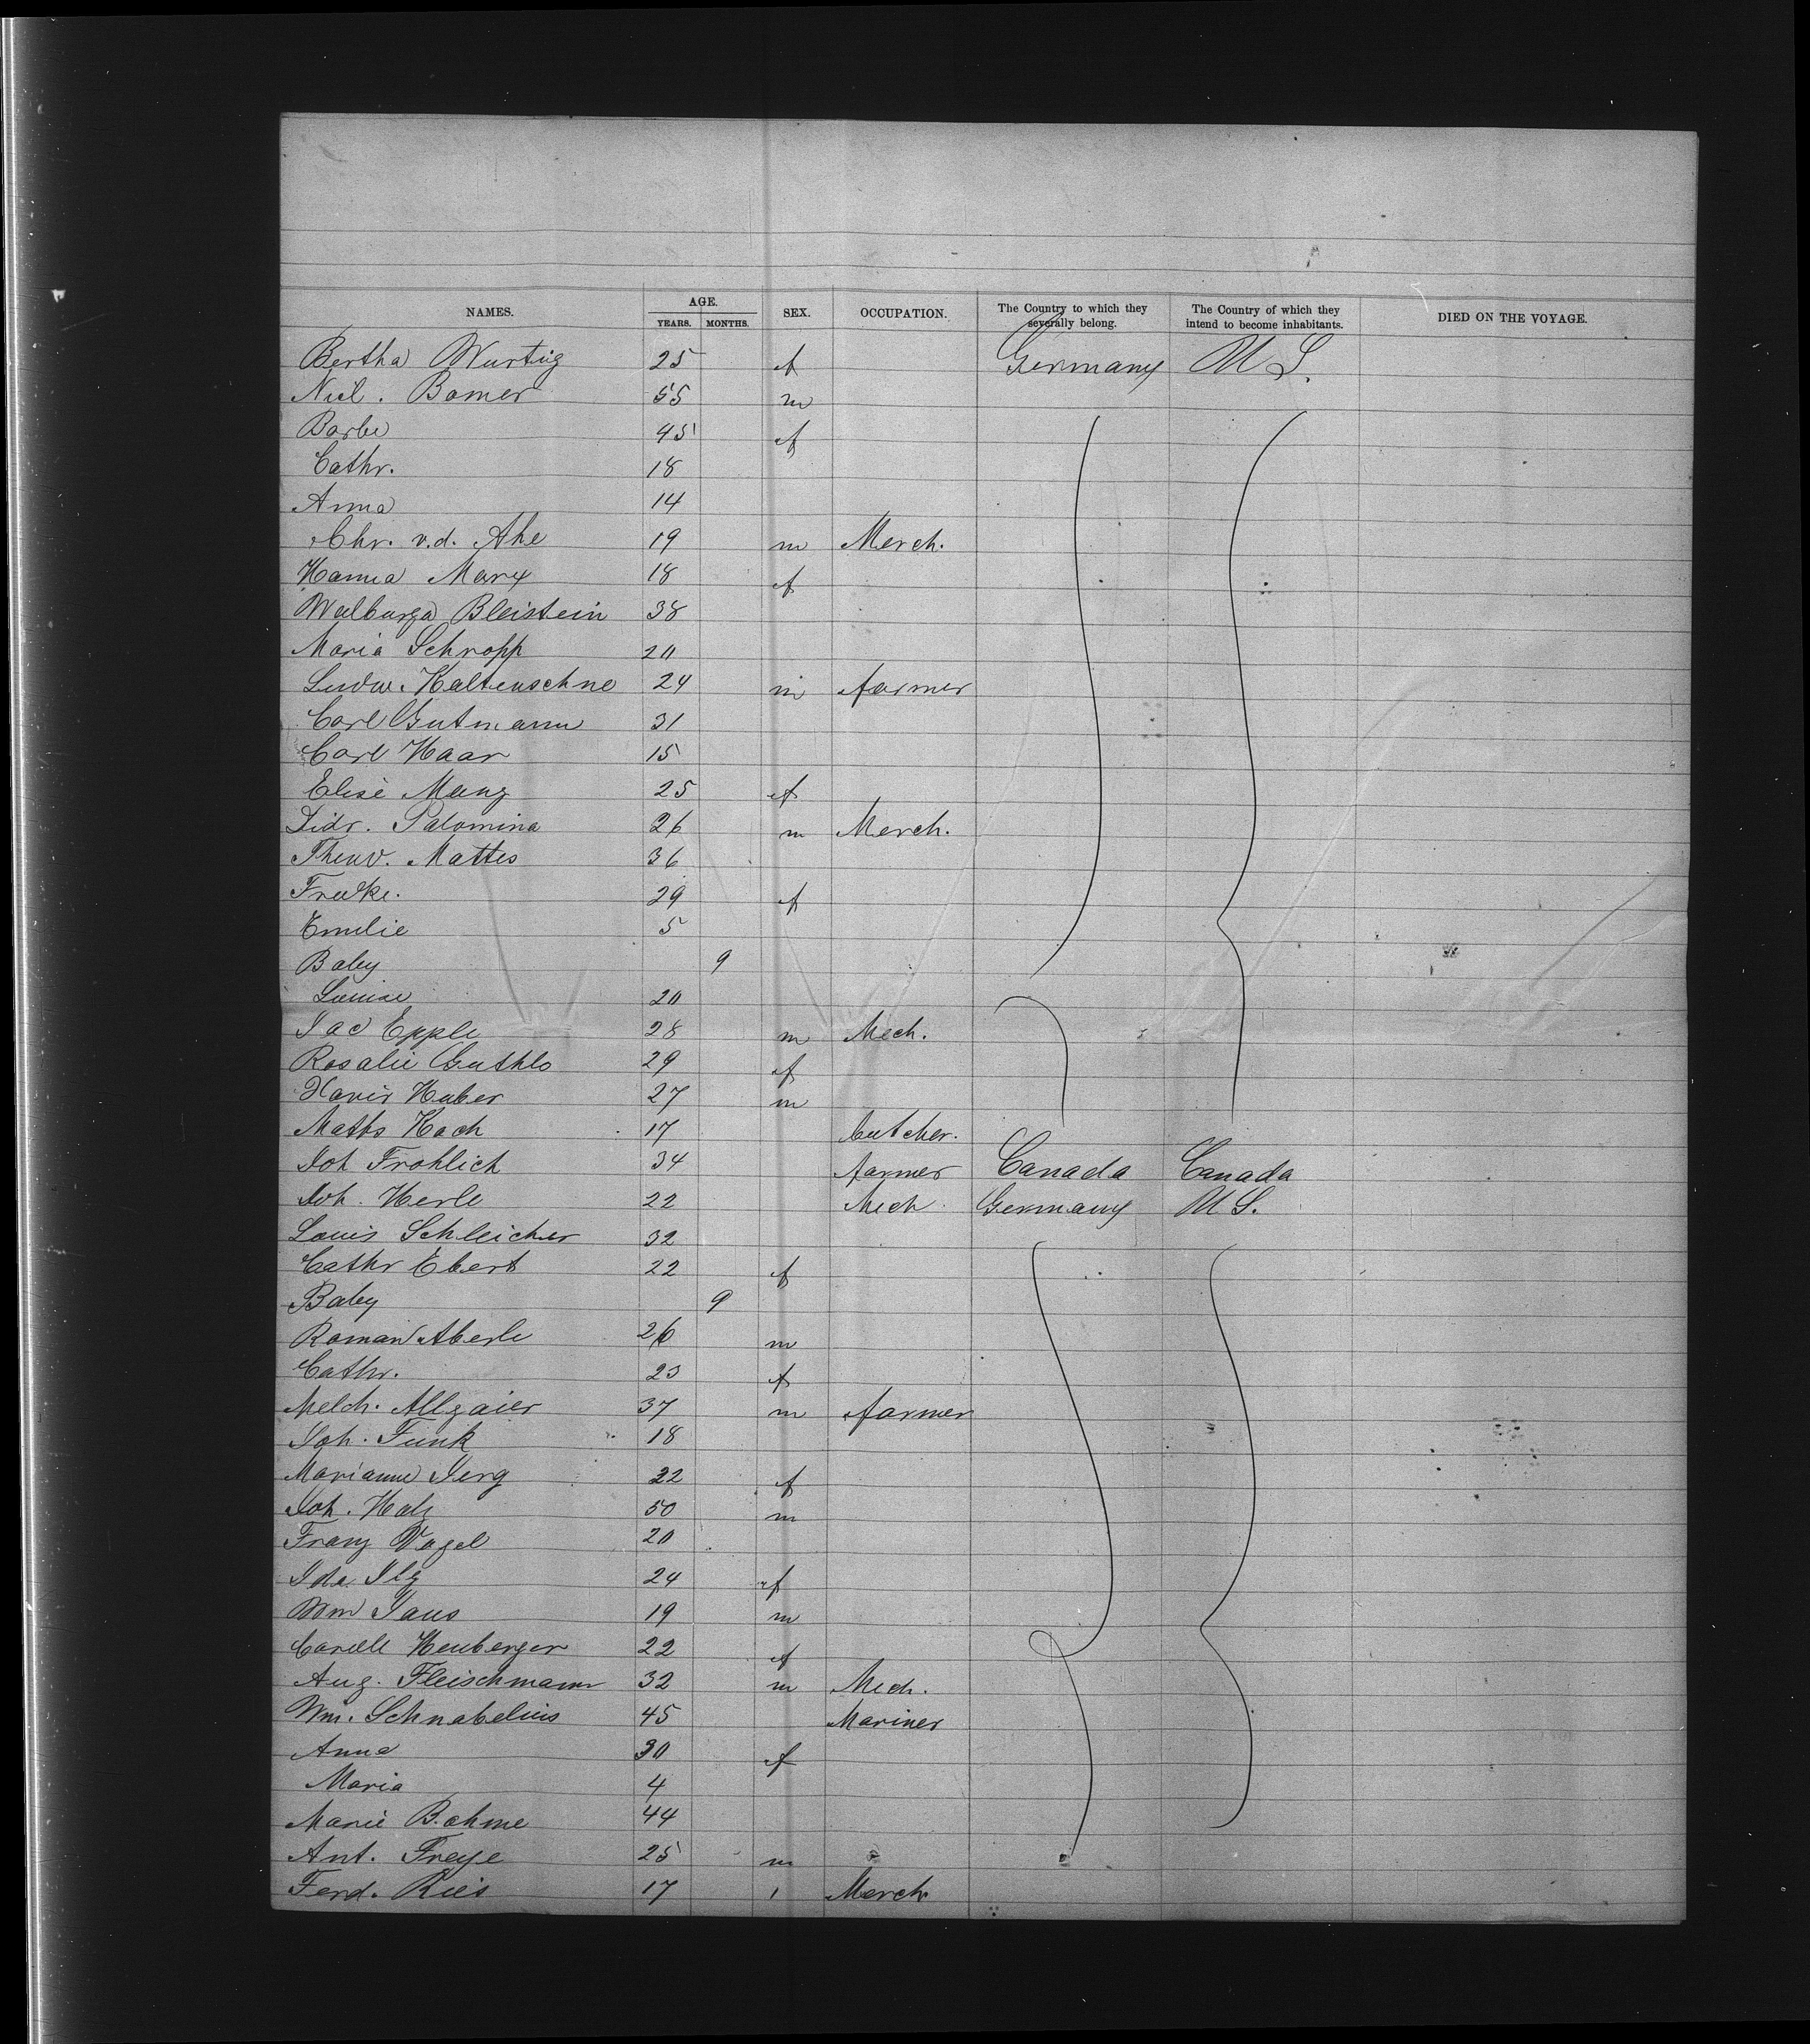 NAMES. AGE. SEX. OCCUPATION. The Country to which they severally belong. The Country of which they intend to become inhabitants. DIED ON THE VOYAGE.
YEARS. MONTHS.
Bertha Wurtig 25 f Germany U S.
Nicl. Bomer 55 m
Barbe 45 f
Cathr. 18
Anna 14
Chr. v.d. Ahe 19 m Merch.
Hanna Marx 18 f
Walburga Bleistein 38
Maria Schropp 20
Ludw. Kaltenschne 24 m farmer
Carl Gutmann 31
Carl Haar 15
Elise Mang 25 f
Palomina 26 m Merch.
Mattes 36
29 f
Emilie 5
Baby 9
Louise 20
Jac Epple 28 m Mech.
Rosalie Guthlo 29 f
Xavir Huber 27 m
Maths Koch 17 butcher.
Joh Frohlich 34 farmer Canada Canada
Joh. Herle 22 Mech. Germany U S.
Louis Schleicher 32
Cathr Ebert 22 f
Baby 9
Roman Aberle 26 m
Cathr. 23 f
Melch. Allgaier 37 m farmer
Joh. Funk 18
Marianne Jerg 22 f
Joh. 50 m
Franz Vogel 20
Ida Ilg 24 f
Wm 19 m
Heuberger 22 f
Aug. Fleischmann 32 m Mech.
Wm. Schnabelius 45 Mariner
Anna 30 f
Maria 4
Marie Bohme 44
Ant. Freye 25 m
Ferd. Ries 17 Merch